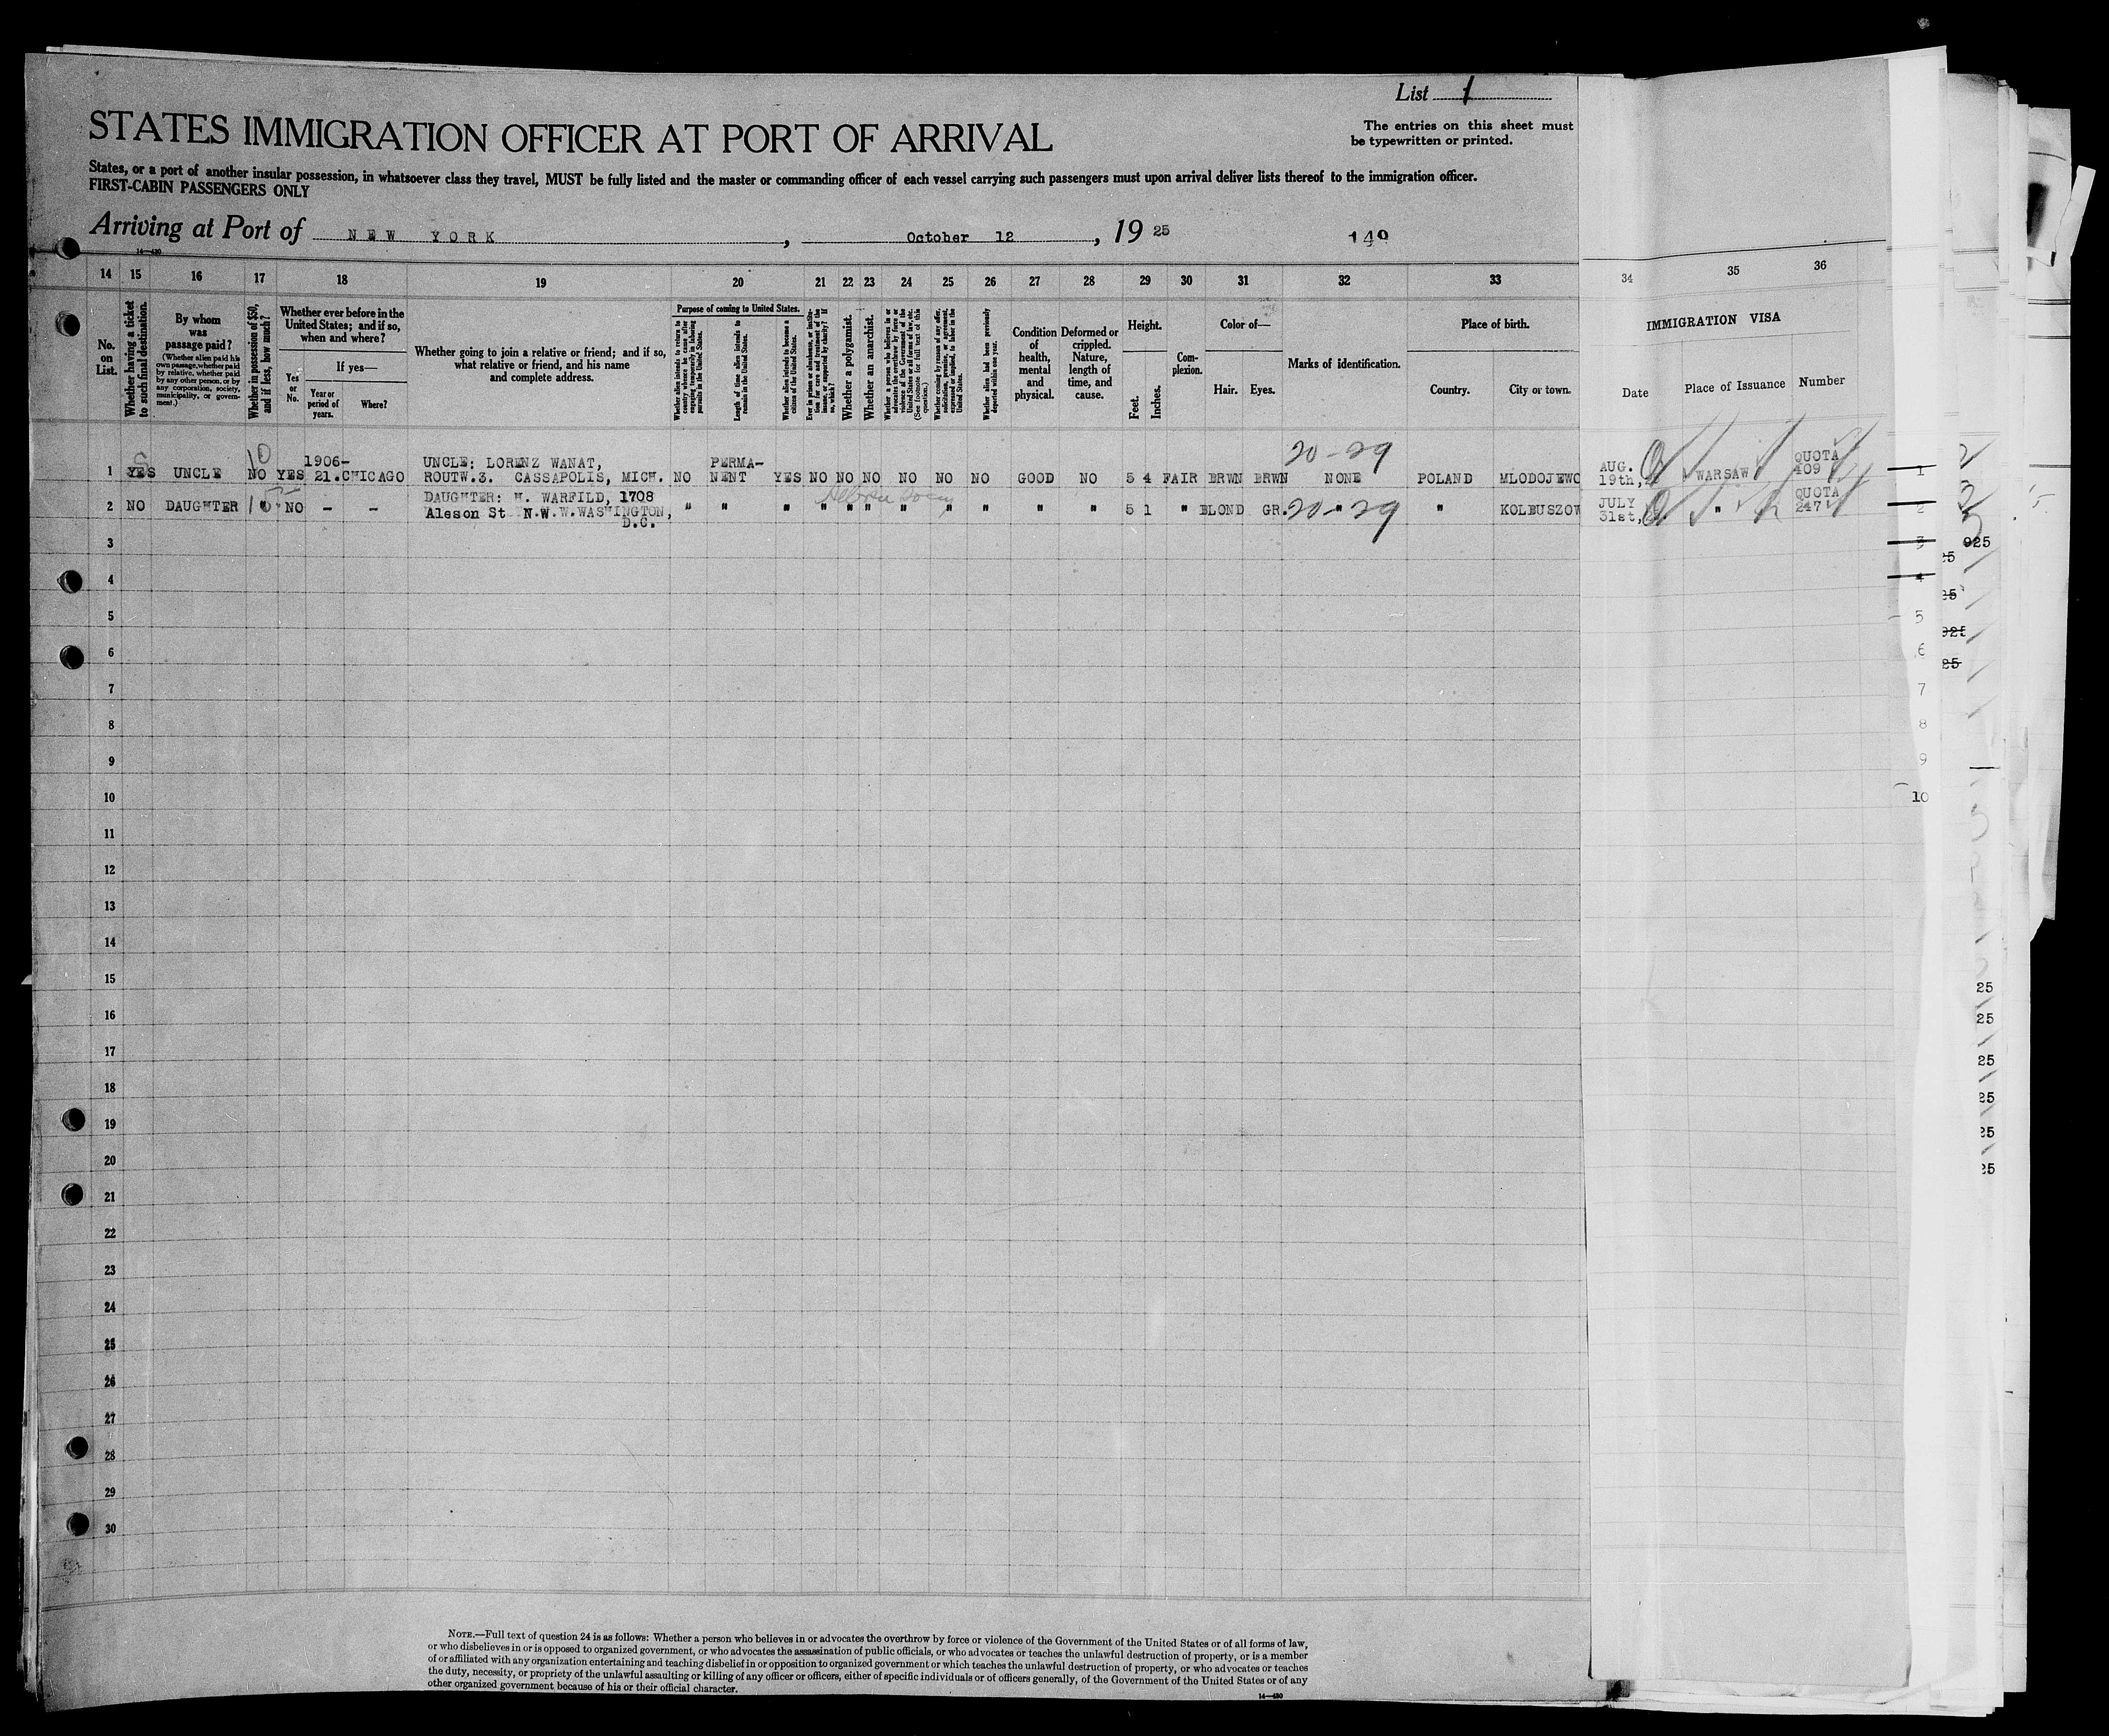 List 1
STATES IMMIGRATION OFFICER AT PORT OF ARRIVAL
The entries on this sheet must
be typewritten or printed.
States, or a port of another insular possession, in whatsoever class they travel, MUST be fully listed and the master or commanding officer of each vessel carrying such passengers must upon arrival deliver lists thereof to the immigration officer.
FIRST-CABIN PASSENGERS ONLY
Arriving at Port of NEW YORK, October 12, 1925
149
14—430
14 15 16 17 18 19 20 21 22 23 24 25 26 27 28 29 30 31 32 33 34 35 36
No. on List.
Whether having a ticket to such final destination.
By whom was passage paid?
(Whether alien paid his own passage, whether paid by relative, whether paid by any other person, or by any corporation, society, municipality, or government.)
Whether in possession of $50, and if less, how much?
Whether ever before in the United States; and if so, when and where?
Yes or No.
If yes—
Year or period of years.
Where?
Whether going to join a relative or friend; and if so, what relative or friend, and his name and complete address.
Purpose of coming to United States.
Whether alien intends to return to country whence he came after engaging temporarily in laboring pursuits in the United States.
Length of time alien intends to remain in the United States.
Whether alien intends to become a citizen of the United States.
Ever in prison or almshouse, or institution for care and treatment of the insane, or supported by charity? If so, which?
Whether a polygamist.
Whether an anarchist.
Whether a person who believes in or advocates the overthrow by force or violence of the Government of the United States or all forms of law, etc. (See footnote for full text of this question.)
Whether coming by reason of any offer, solicitation, promise, or agreement, expressed or implied, to labor in the United States.
Whether alien had been previously deported within one year.
Condition of health, mental and physical.
Deformed or crippled. Nature, length of time, and cause.
Height.
Feet. Inches.
Complexion.
Color of—
Hair. Eyes.
Marks of identification.
Place of birth.
Country. City or town.
IMMIGRATION VISA
Date Place of Issuance Number
1 YES UNCLE 10 NO YES 1906-21. CHICAGO UNCLE: LORENZ WANAT, ROUTW.3. CASSAPOLIS, MICH. NO PERMANENT YES NO NO NO NO NO NO GOOD NO 5 4 FAIR BRWN BRWN 20-29 NONE POLAND MLODOJEWO AUG. 19th, WARSAW QUOTA 409 1
2 NO DAUGHTER NO - - DAUGHTER: M. WARFILD, 1708 Aleson St N.W.W.WASHINGTON, D.C. " " " " " " " " " " " 5 1 " BLOND GR. 20-29 " " KOLBUSZOW JULY 31st, " QUOTA 247 2
3 3 925
4 4
5 5
6 6
7 7
8 8
9 9
10 10
11
12
13
14
15 25
16 25
17 25
18 25
19 25
20 25
21
22
23
24
25
26
27
28
29
30
NOTE.—Full text of question 24 is as follows: Whether a person who believes in or advocates the overthrow by force or violence of the Government of the United States or of all forms of law,
or who disbelieves in or is opposed to organized government, or who advocates the assassination of public officials, or who advocates or teaches the unlawful destruction of property, or is a member
of or affiliated with any organization entertaining and teaching disbelief in or opposition to organized government or which teaches the unlawful destruction of property, or who advocates or teaches
the duty, necessity, or propriety of the unlawful assaulting or killing of any officer or officers, either of specific individuals or of officers generally, of the Government of the United States or of any
other organized government because of his or their official character.
14—430